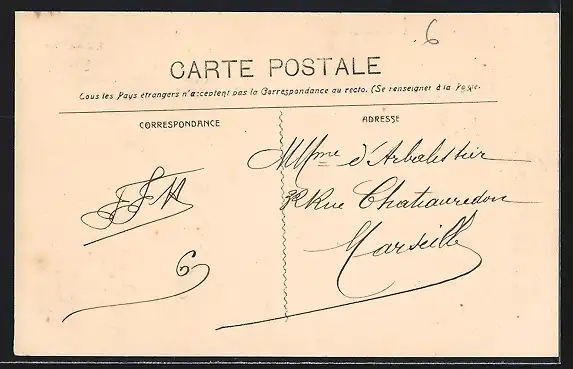 6
CARTE POSTALE
Tous les Pays étrangers n'acceptent pas la Correspondance au recto. (Se renseigner à la Poste.
CORRESPONDANCE
ADRESSE
Mme d'Arbalestier
32 Rue Chateauredon
Marseille
6